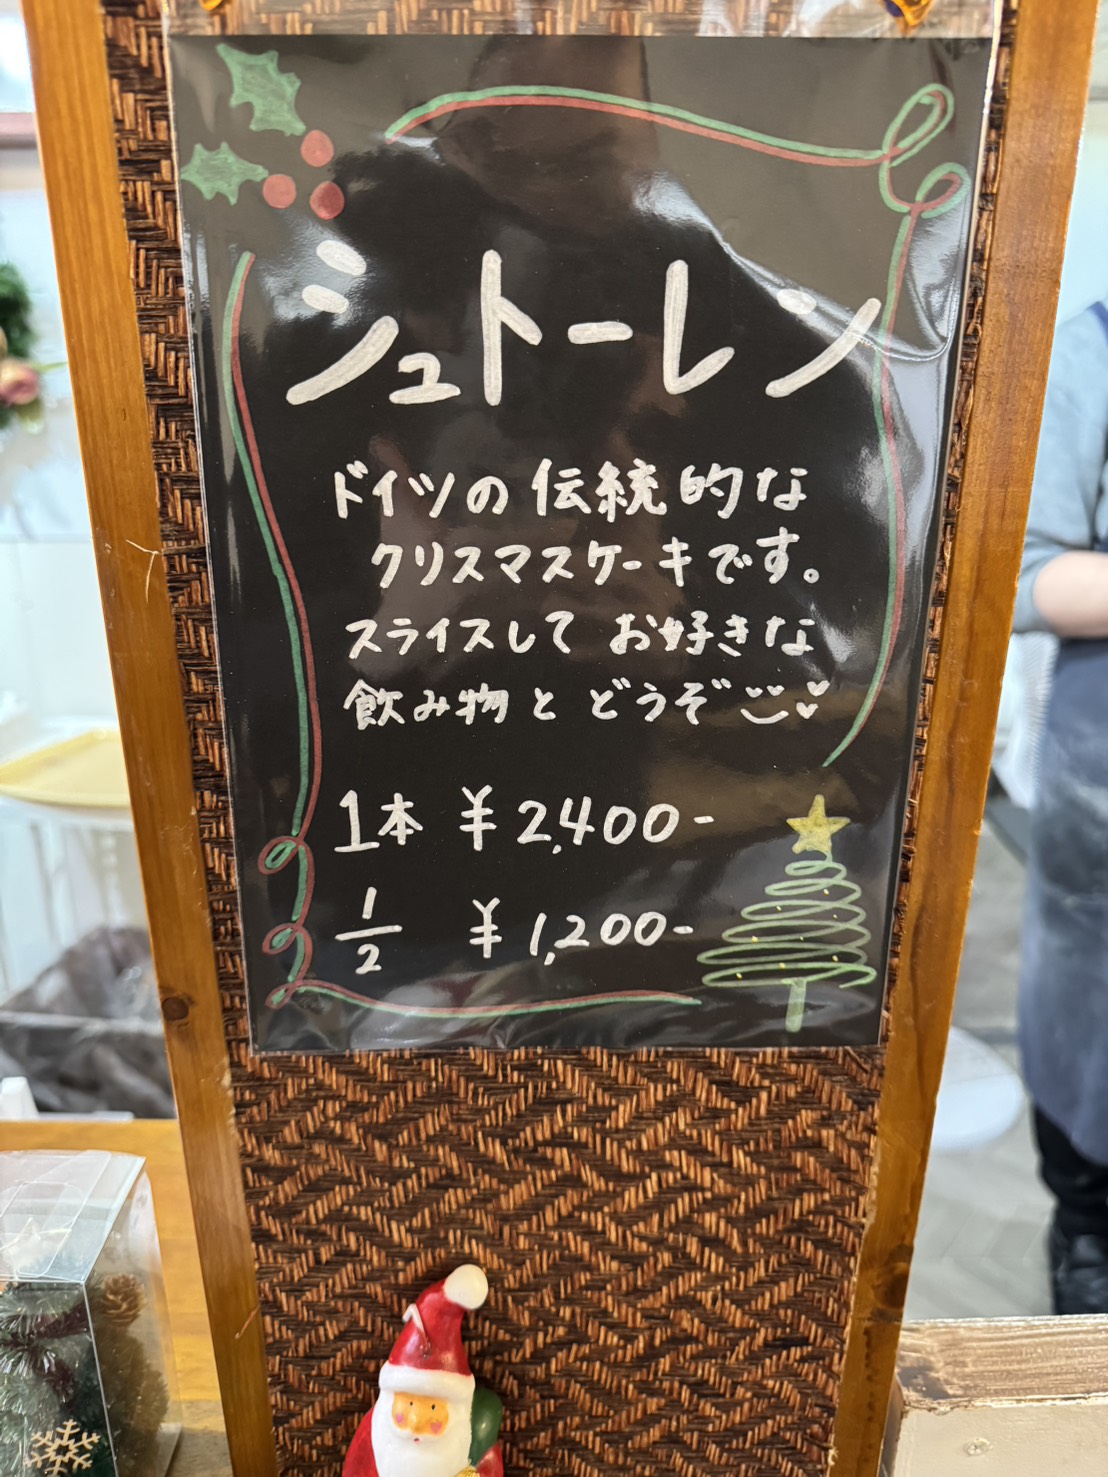 シュトーレン
ドイツの伝統的な
クリスマスケーキです。
スライスして お好きな
飲み物と どうぞ
1本 ¥2,400-
1/2 ¥1,200-